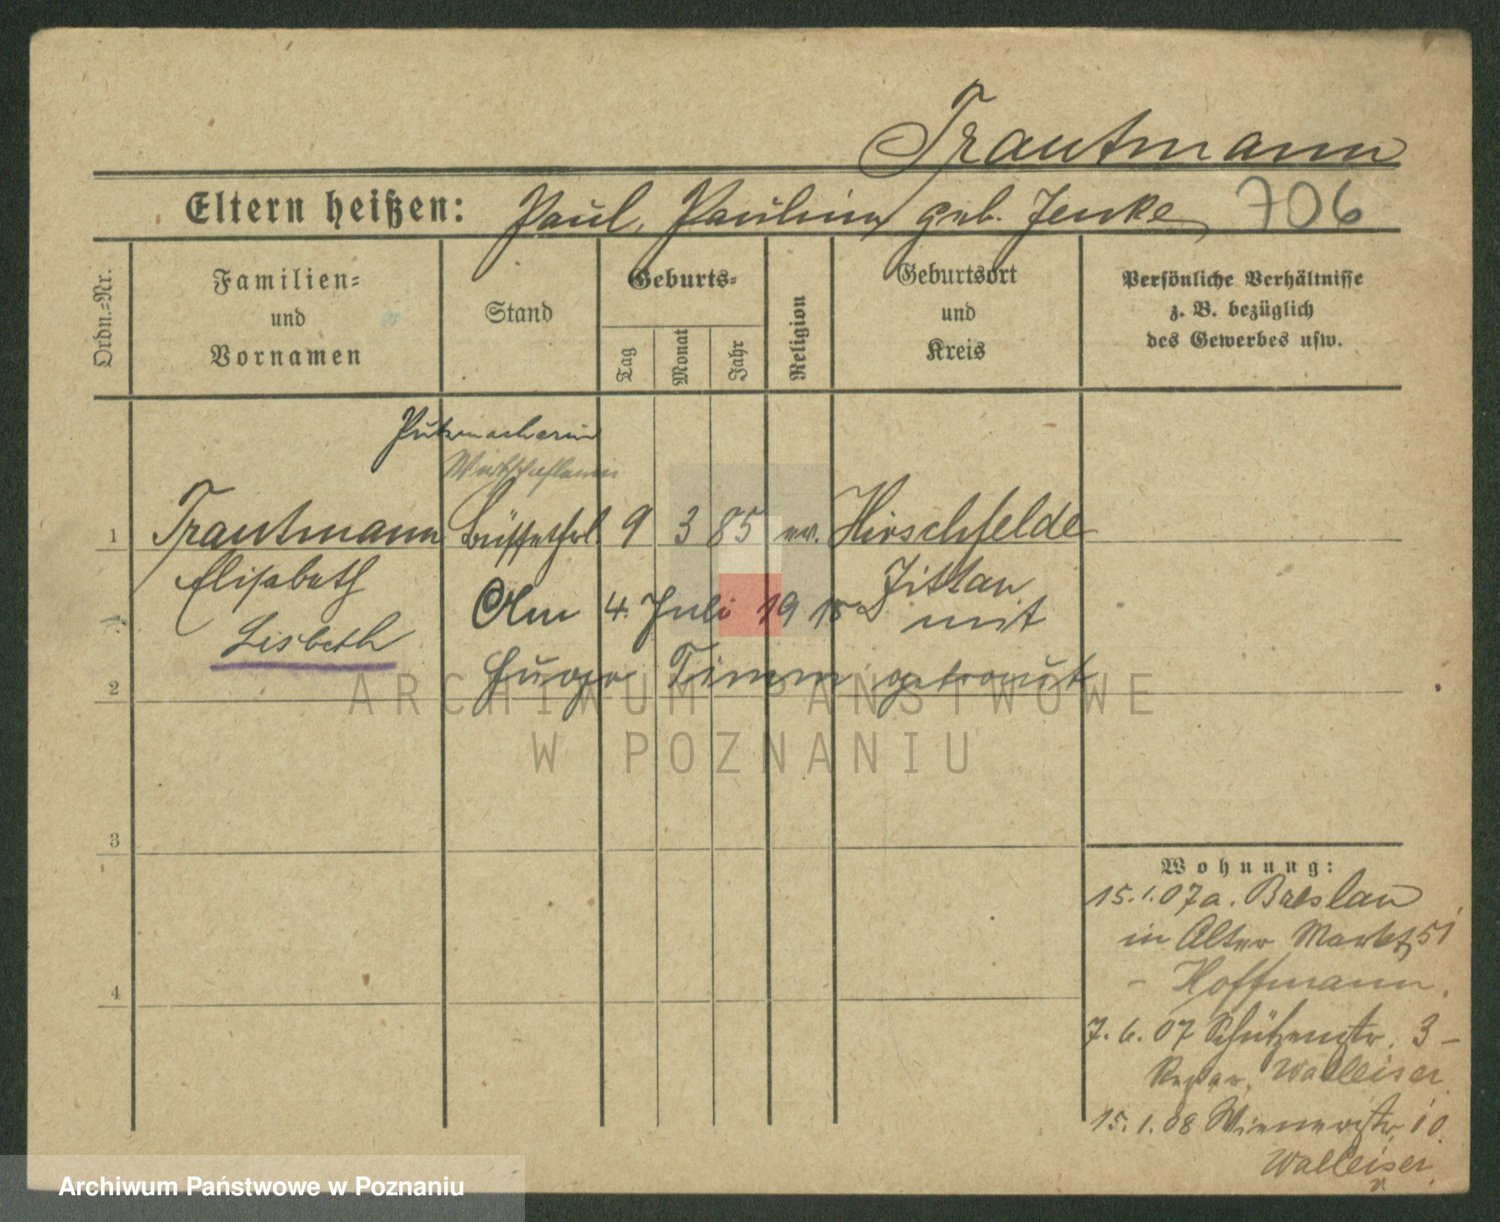 Trautmann
Eltern heißen: Paul, Pauline geb. Jenke 706
Ordn.-Nr.
Familien-
und
Vornamen
Stand
Geburts-
Tag
Monat
Jahr
Religion
Geburtsort
und
Kreis
Persönliche Verhältnisse
z. B. bezüglich
des Gewerbes usw.
Putzmacherin
1 Trautmann Büffetfrl. 9 3 85 ev. Hirschfelde
Elisabeth Zittau
Am 4. Juli 1918 mit
Lisbeth
Timm getraut
2
3
4
Wohnung:
15.1.07 a. Breslau
in Alter Markt 51
- Hoffmann.
7.6.07 Schützenstr. 3 -
Walleiser.
15.1.08 Wienerstr. 10.
Walleiser.
ARCHIWUM PAŃSTWOWE
W POZNANIU
Archiwum Państwowe w Poznaniu